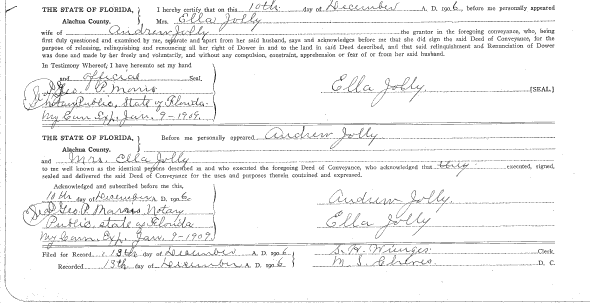 THE STATE OF FLORIDA, } I hereby certify that on this 10th day of December A. D. 1906, before me personally appeared
Alachua County. Mrs. Ella Jolly
wife of Andrew Jolly the grantor in the foregoing conveyance, who, being
first duly questioned and examined by me, separate and apart from her said husband, says and acknowledges before me that she did sign the said Deed of Conveyance, for the
purpose of releasing, relinquishing and renouncing all her right of Dower in and to the land in said Deed described, and that said relinquishment and Renunciation of Dower
was done and made by her freely and voluntarily, and without any compulsion, constraint, apprehension or fear of or from her said husband.
In Testimony Whereof, I have hereunto set my hand
and official Seal,
Geo. P. Morris
Notary Public, State of Florida.
My Com. Exp. Jan. 9-1909.
Ella Jolly [SEAL.]
THE STATE OF FLORIDA, } Before me personally appeared Andrew Jolly
Alachua County.
and Mrs. Ella Jolly
to me well known as the identical persons described in and who executed the foregoing Deed of Conveyance, who acknowledged that they executed, signed,
sealed and delivered the said Deed of Conveyance for the uses and purposes therein contained and expressed.
Acknowledged and subscribed before me this,
10th day of December A. D. 1906.
Geo. P. Morris, Notary
Public, State of Florida
My Com. Exp. Jan. 9-1909.
Andrew Jolly.
Ella Jolly
Filed for Record 13th day of December A. D. 1906
Recorded 13th day of December A. D. 1906
S. H. Wienges Clerk.
M. S. Cheves D. C.